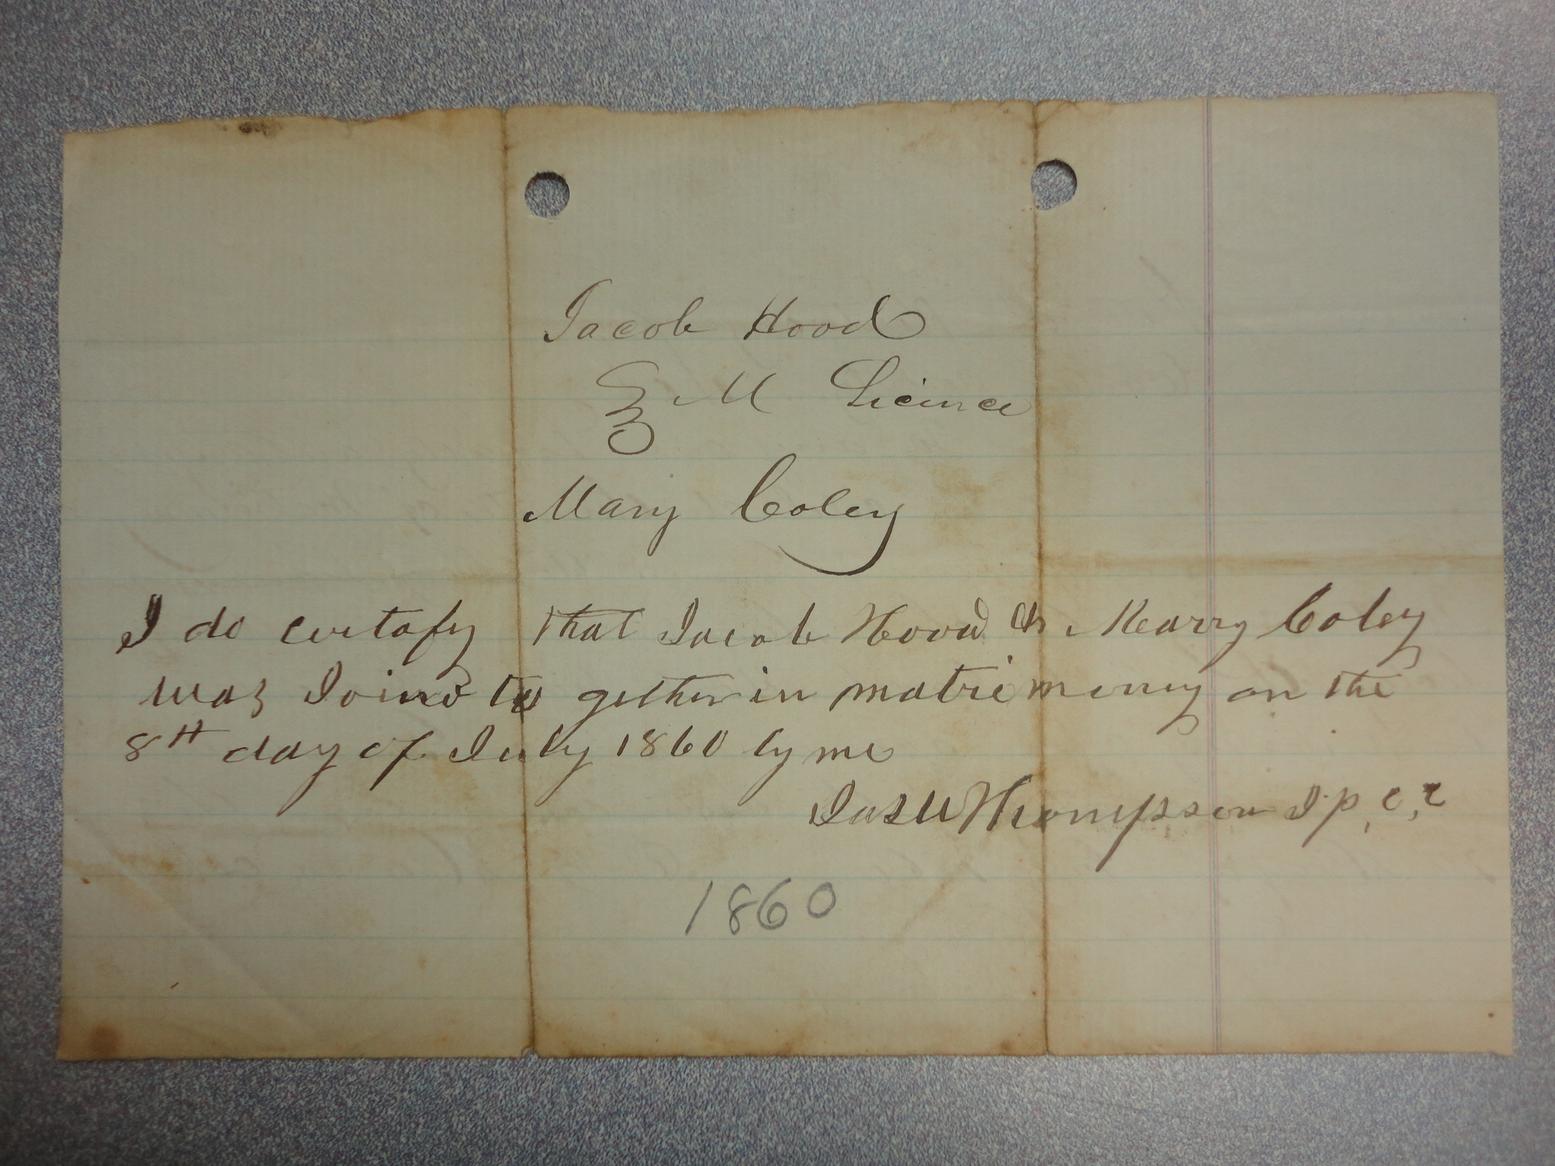 Jacob Hood
& M Licince
Mary Coley
I do certafy that Jacob Hood & Marry Coley
was Joind to gether in matrimony on the
8th day of July 1860 by me
Jas W Thompson J. p. c, c
1860